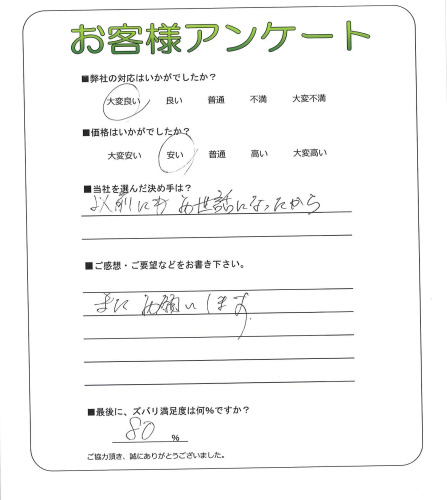 お客様アンケート
■弊社の対応はいかがでしたか?
大変良い 良い 普通 不満 大変不満
■価格はいかがでしたか?
大変安い 安い 普通 高い 大変高い
■当社を選んだ決め手は?
以前にもお世話になったから
■ご感想・ご要望などをお書き下さい。
またお願いします
■最後に、ズバリ満足度は何%ですか?
80 %
ご協力頂き、誠にありがとうございました。